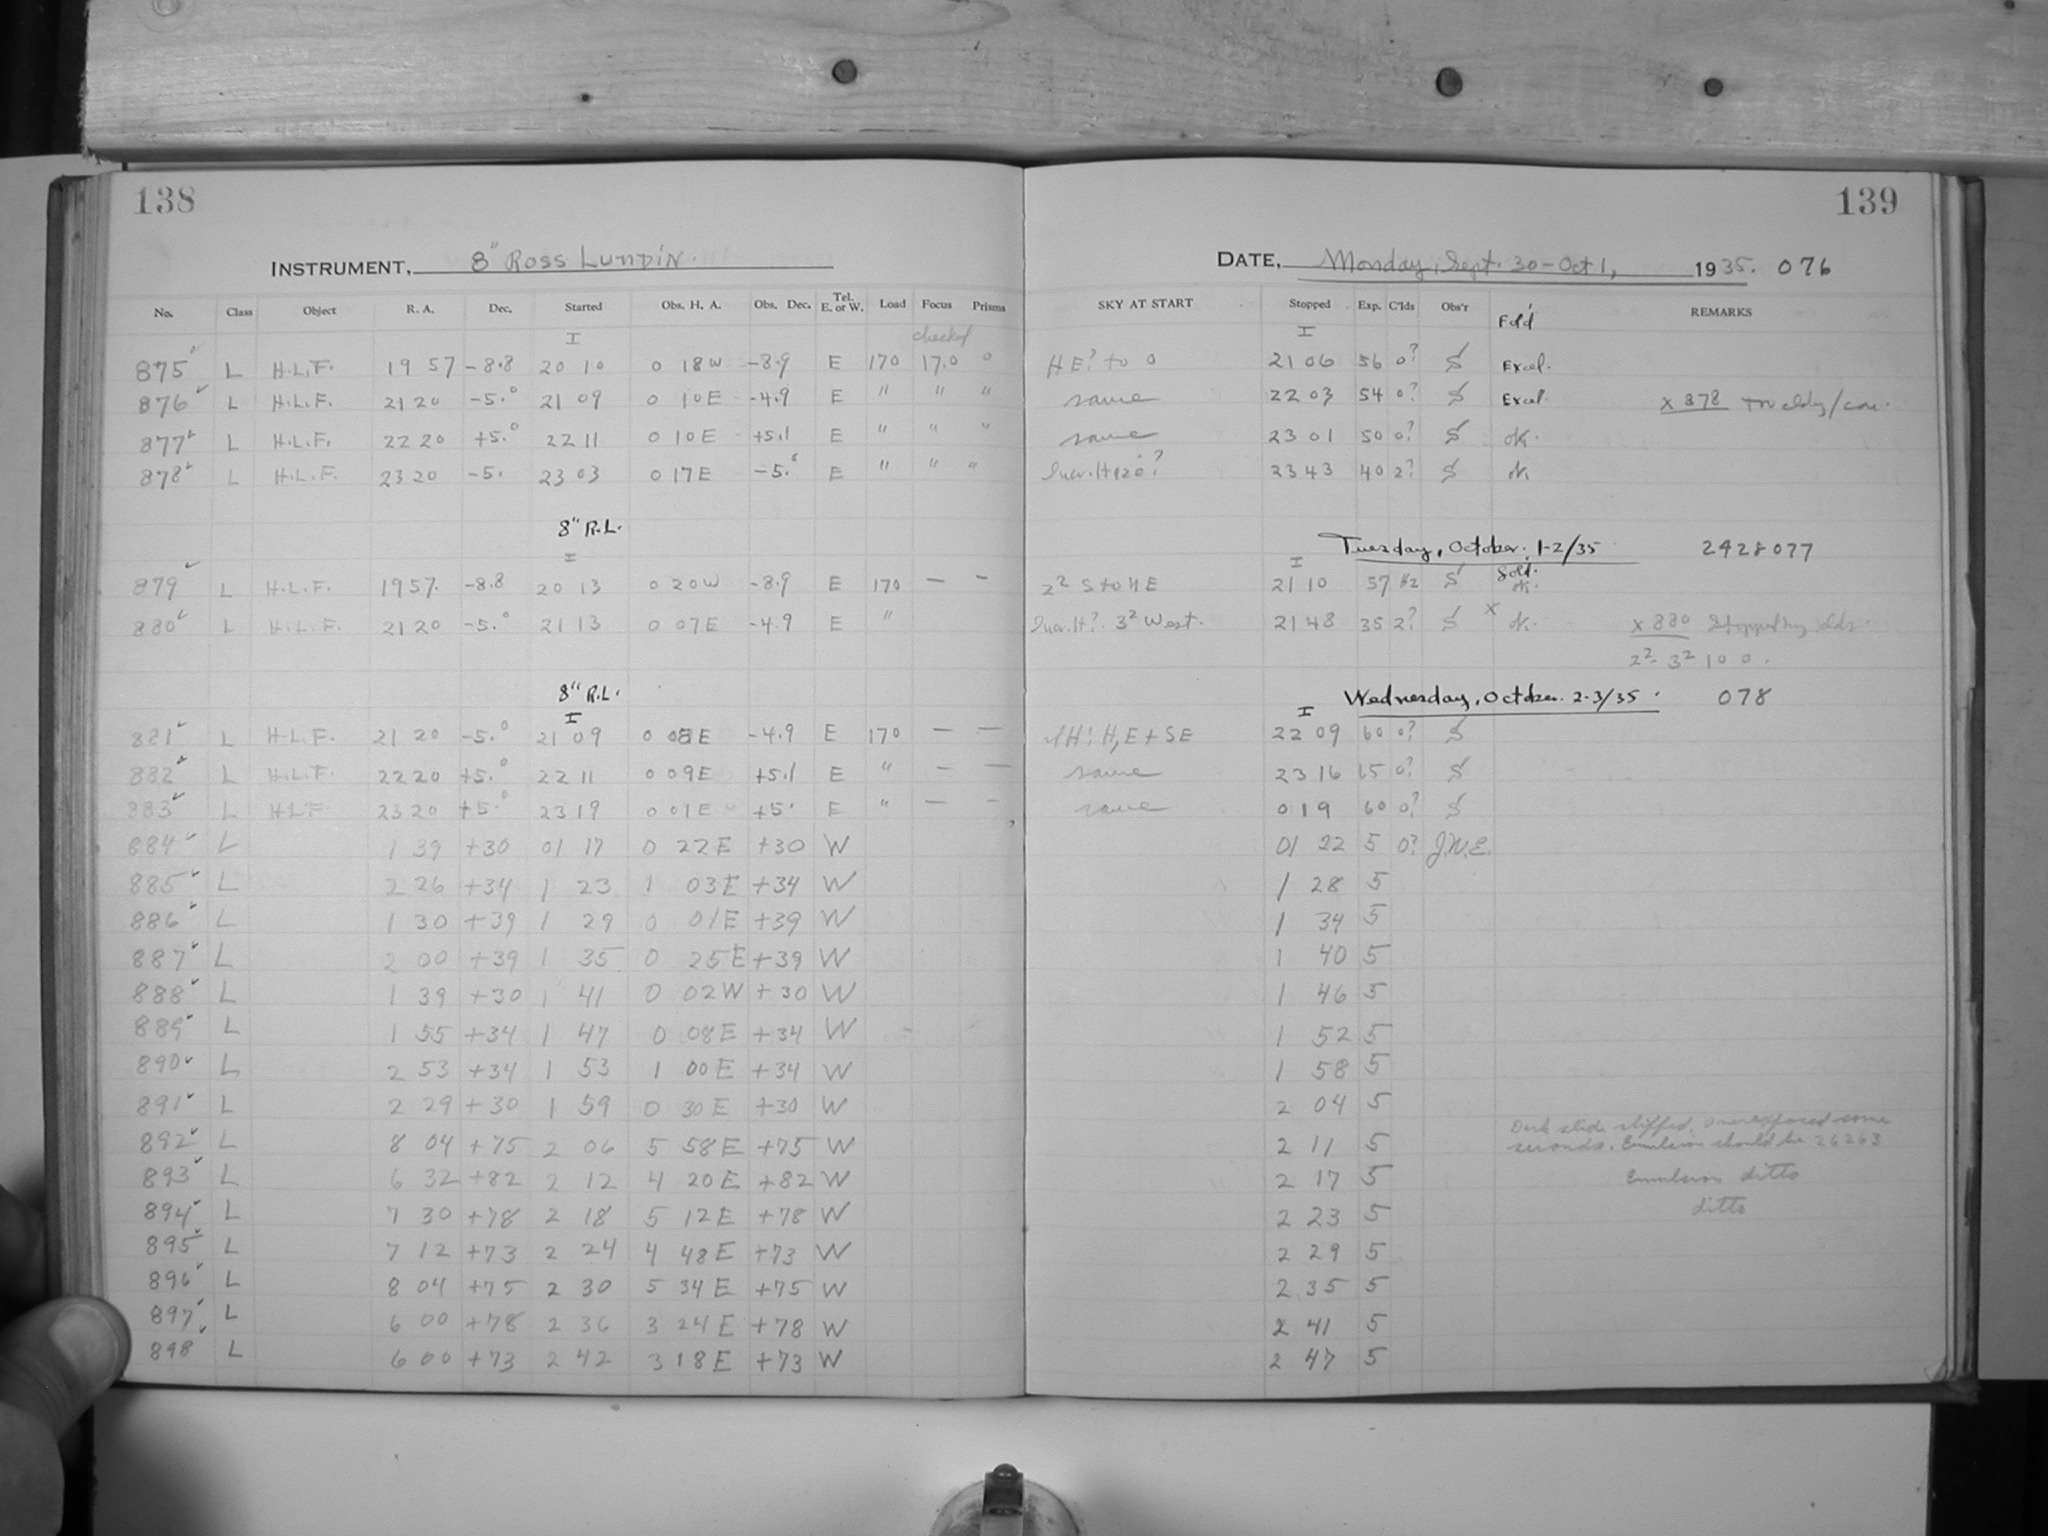 138
INSTRUMENT, 8" ROSS LUNDIN.
No. Class Object R. A. Dec. Started Obs. H. A. Obs. Dec. Tel. E. or W. Load Focus Prisms
I checked
875 L H.L.F. 19 57 -8.8 20 10 0 18W -8.9 E 170 17.0 0
876 L H.L.F. 21 20 -5.° 21 09 0 10E -4.9 E " " "
877 L H.L.F. 22 20 +5.° 22 11 0 10E +5.1 E " " "
878 L H.L.F. 23 20 -5. 23 03 0 17E -5. E " " "
8" R.L.
I
879 L H.L.F. 19 57. -8.8 20 13 0 20W -8.9 E 170 — —
880 L H.L.F. 21 20 -5.° 21 13 0 07E -4.9 E "
8" R.L.
I
881 L H.L.F. 21 20 -5.° 21 09 0 08E -4.9 E 170 — —
882 L H.L.F. 22 20 +5.° 22 11 0 09E +5.1 E " — —
883 L H.L.F. 23 20 +5.° 23 19 0 01E +5. E " — —
884 L 1 39 +30 01 17 0 22E +30 W
885 L 2 26 +34 1 23 1 03E +34 W
886 L 1 30 +39 1 29 0 01E +39 W
887 L 2 00 +39 1 35 0 25E +39 W
888 L 1 39 +30 1 41 0 02W +30 W
889 L 1 55 +34 1 47 0 08E +34 W
890 L 2 53 +34 1 53 1 00E +34 W
891 L 2 29 +30 1 59 0 30E +30 W
892 L 8 04 +75 2 06 5 58E +75 W
893 L 6 32 +82 2 12 4 20E +82 W
894 L 7 30 +78 2 18 5 12E +78 W
895 L 7 12 +73 2 24 4 48E +73 W
896 L 8 04 +75 2 30 5 34E +75 W
897 L 6 00 +78 2 36 3 24E +78 W
898 L 6 00 +73 2 42 3 18E +73 W
139
DATE, Monday, Sept. 30-Oct 1, 1935. 076
SKY AT START Stopped Exp. C'lds Obs'r Fdd REMARKS
I
HE? to 0 21 06 56 0? S Excel.
same 22 03 54 0? S Excel. X 878
same 23 01 50 0? S OK.
23 43 40 2? S OK
Tuesday, October, 1-2/35 2428077
I
2² S to HE 21 10 57 S OK.
3² West. 21 48 35 2? S X OK. X 880 Stopped by clds.
2² 3² 10 0.
Wednesday, October. 2-3/35. 078
I
H, E + SE 22 09 60 0? S
same 23 16 65 0? S
same 0 19 60 0? S
01 22 5 0? J.W.E.
1 28 5
1 34 5
1 40 5
1 46 5
1 52 5
1 58 5
2 04 5
Dark slide slipped, overexposed some
2 11 5 seconds. Emulsion should be 26263
2 17 5 Emulsion ditto
2 23 5 ditto
2 29 5
2 35 5
2 41 5
2 47 5